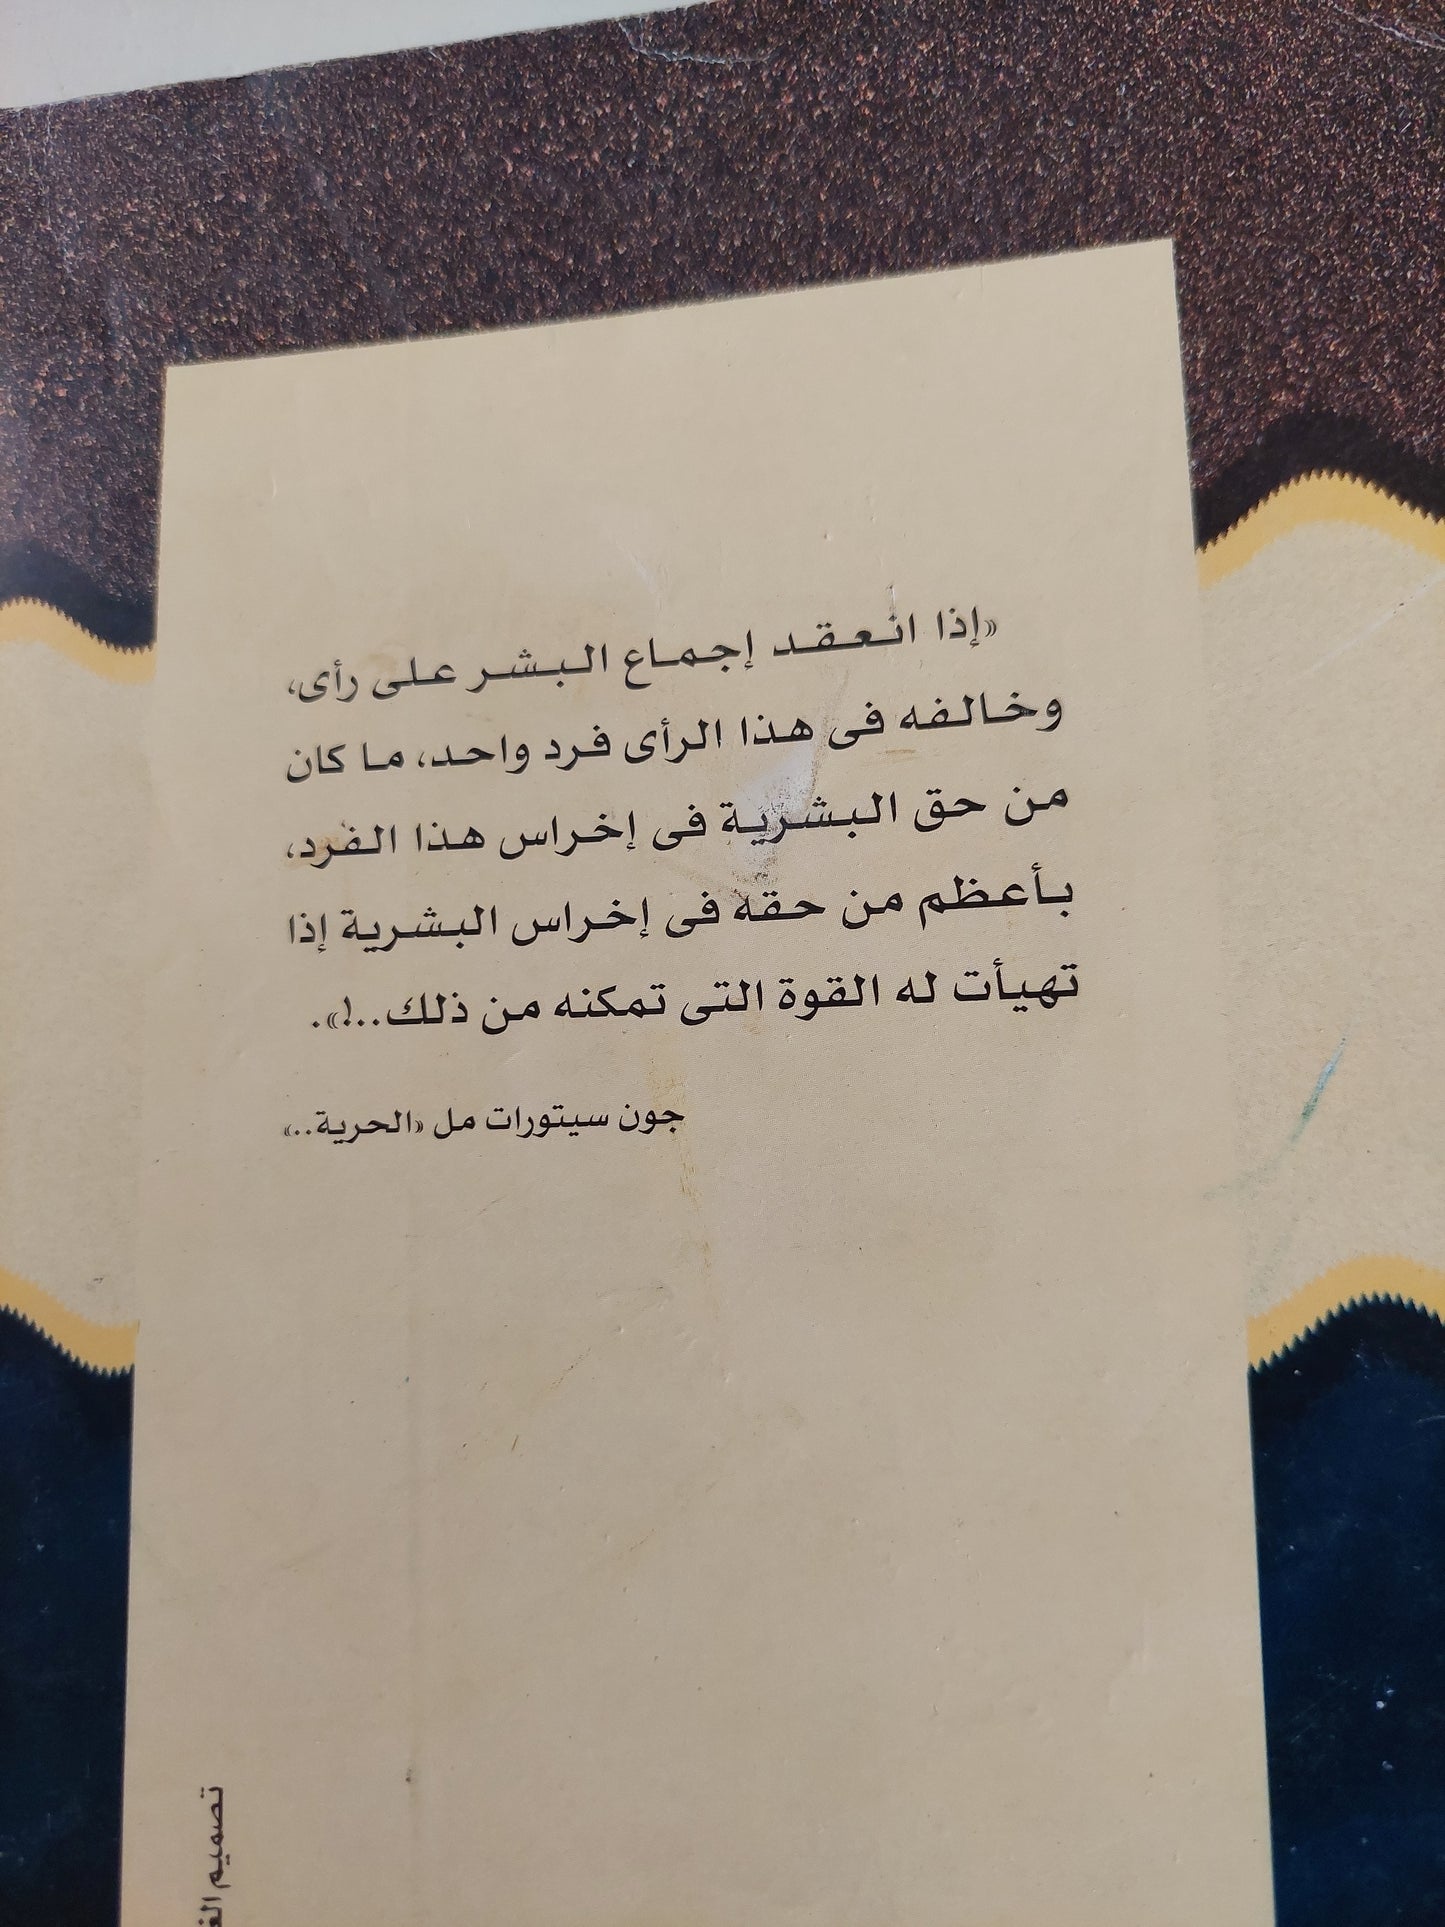 «إذا انعقد إجماع البشر على رأى،
وخالفه فى هذا الرأى فرد واحد، ما كان
من حق البشرية فى إخراس هذا الفرد،
بأعظم من حقه فى إخراس البشرية إذا
تهيأت له القوة التى تمكنه من ذلك..!».
جون سيتورات مل «الحرية..»
تصميم